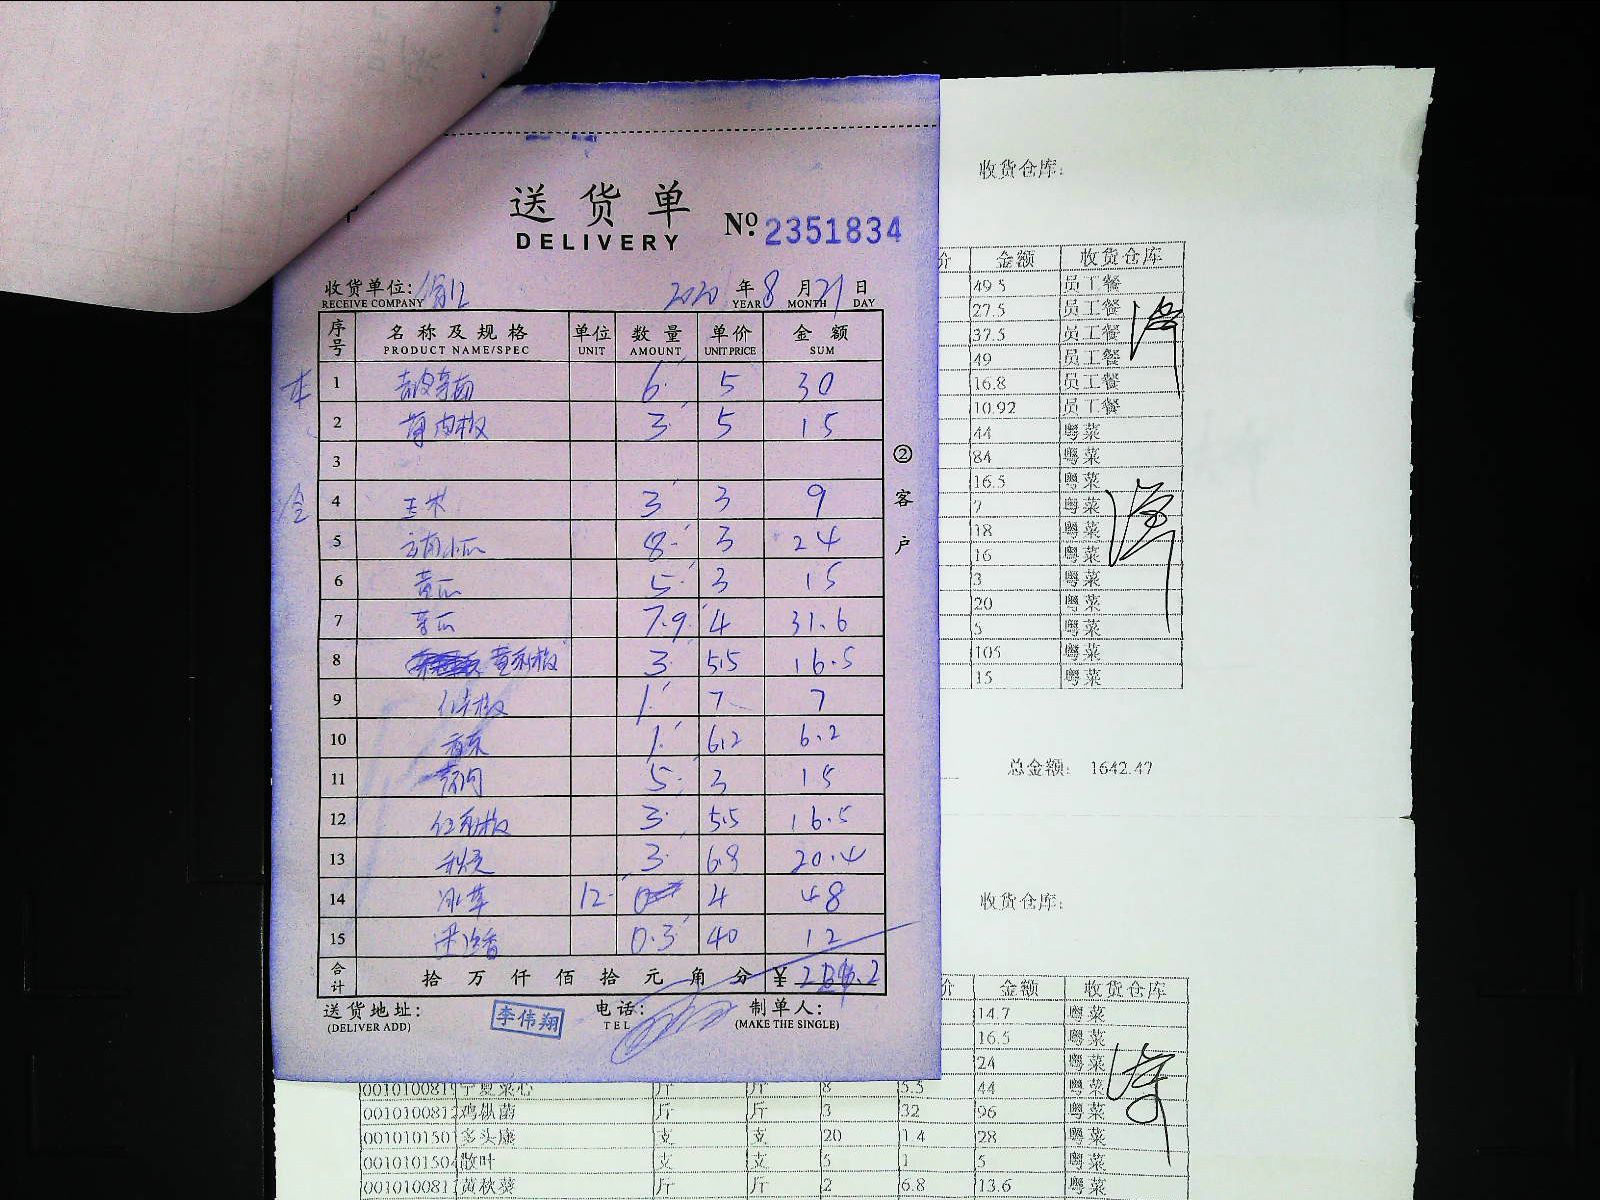 送货单
DELIVERY
No. 2351834
收货单位:
RECEIVE COMPANY
2020 年 8 月 21 日
YEAR MONTH DAY
序号 名称及规格 单位 数量 单价 金额
PRODUCT NAME/SPEC UNIT AMOUNT UNIT PRICE SUM
1 6 5 30
2 3 5 15
3
4 玉米 3 3 9
5 云南小瓜 8 3 24
6 黄瓜 5 3 15
7 7.9 4 31.6
8 黄彩椒 3 5.5 16.5
9 1 7 7
10 1 6.2 6.2
11 5 3 15
12 红彩椒 3 5.5 16.5
13 秋葵 3 6.8 20.4
14 冰草 12 4 48
15 0.3 40 12
合计 拾万仟佰拾元角分 ¥
送货地址: 电话: 制单人:
(DELIVER ADD) TEL (MAKE THE SINGLE)
李伟翔
②客户
收货仓库:
价 金额 收货仓库
49.5 员工餐
27.5 员工餐
37.5 员工餐
49 员工餐
16.8 员工餐
10.92 员工餐
44 粤菜
84 粤菜
16.5 粤菜
7 粤菜
18 粤菜
16 粤菜
3 粤菜
20 粤菜
5 粤菜
105 粤菜
15 粤菜
总金额: 1642.47
收货仓库:
价 金额 收货仓库
14.7 粤菜
16.5 粤菜
24 粤菜
001010081 宁夏菜心 斤 斤 8 5.5 44 粤菜
001010081 鸡枞菌 斤 斤 3 32 96 粤菜
001010150 多头康 支 支 20 1.4 28 粤菜
001010150 散叶 支 支 5 1 5 粤菜
001010081 黄秋葵 斤 斤 2 6.8 13.6 粤菜